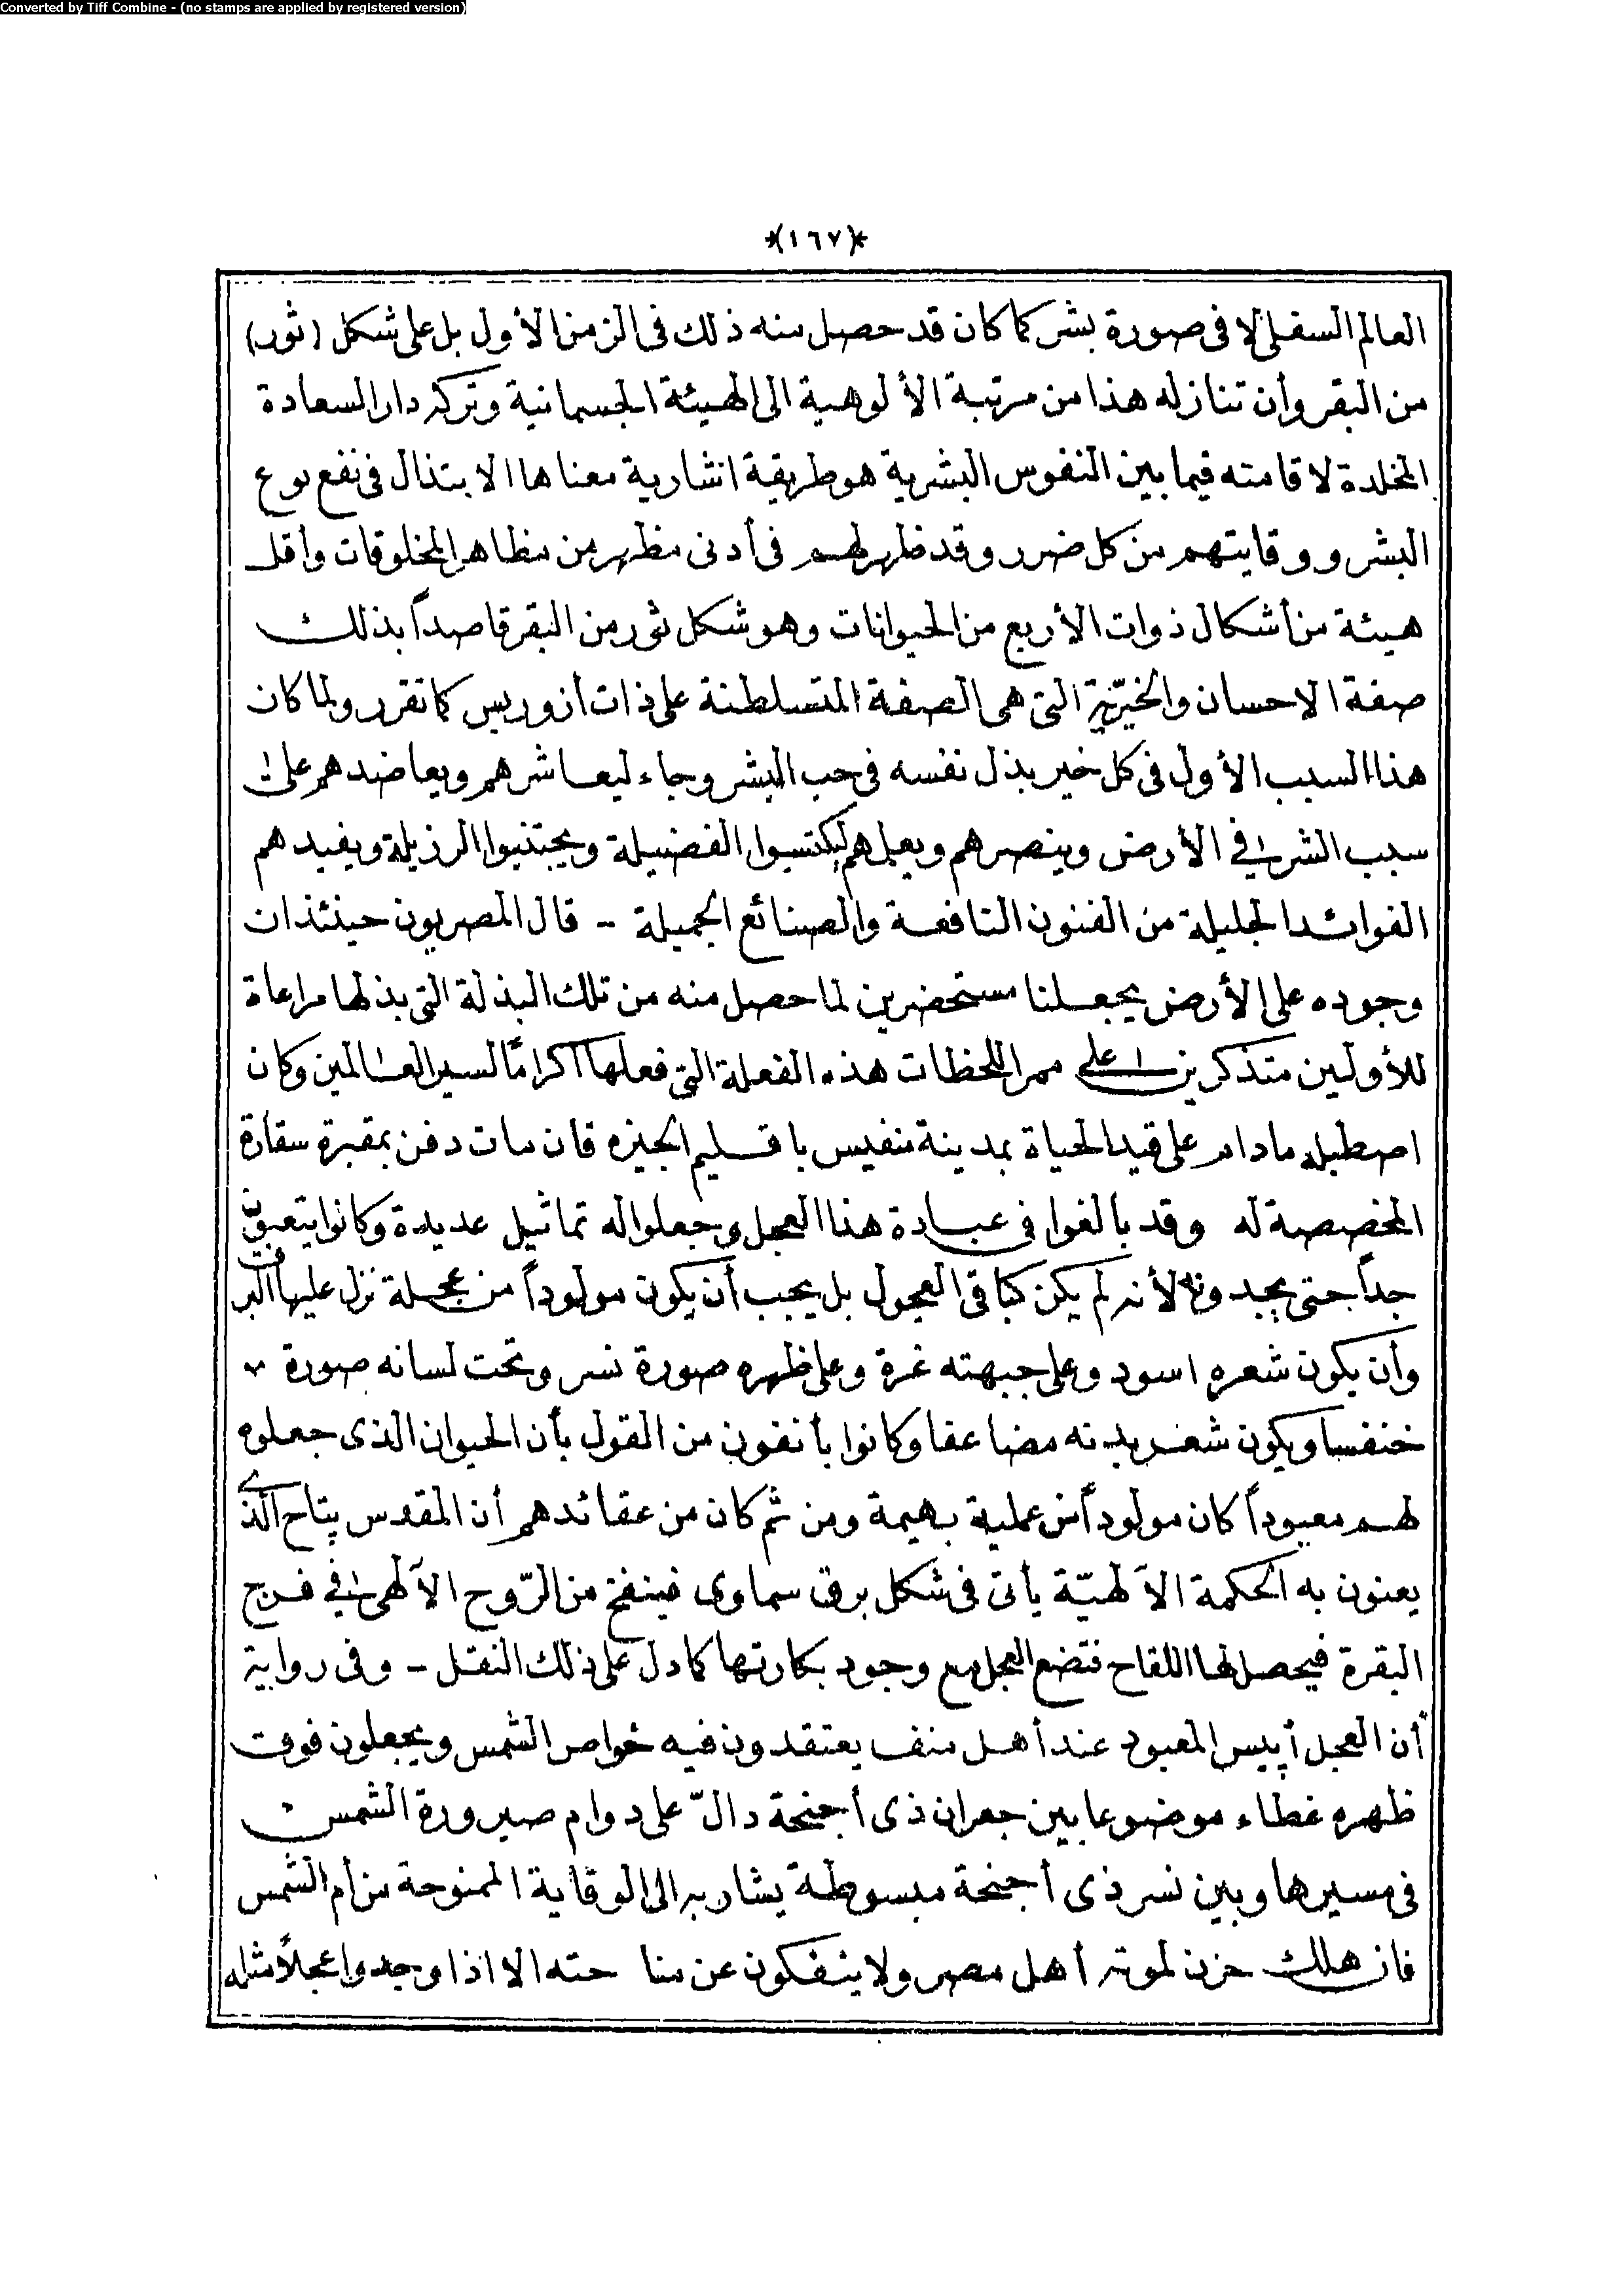 Converted by Tiff Combine - (no stamps are applied by registered version)
*(١٦٧)*
العالم السفلى لا فى صورة بشر كما كان قد حصل منه ذلك فى الزمن الأول بل على شكل (ثور)
من البقر وأن تنازله هذا من مرتبة الألوهية الى الهيئة الجسمانية وتركه دار السعادة
المخلدة لاقامته فيما بين النفوس البشرية هو طريقة اشارية معناها الابتذال فى نفع نوع
البشر ووقايتهم من كل ضرر وقد ظهر لهم فى أدنى مظهر من مظاهر المخلوقات وأقل
هيئة من أشكال ذوات الأربع من الحيوانات وهو شكل ثور من البقر قاصداً بذلك
صفة الاحسان والخيّرية التى هى الصفة المتسلطنة على ذات أزوريس كما تقرر ولما كان
هذا السبب الأول فى كل خير بذل نفسه فى حب البشر وجاء ليعاشرهم ويعاضدهم على
سبب الشر فى الأرض وينصرهم ويعلمهم ليكتسبوا الفضيلة ويجتنبوا الرزيلة ويفيدهم
الفوائد الجليلة من الفنون النافعة والصنائع الجميلة - قال المصريون حينئذ ان
وجوده على الأرض يجعلنا مستحضرين لما حصل منه من تلك البذلة التى بذلها مراعاة
للأولين متذكرين على ممر اللحظات هذه الفعلة التى فعلها اكراما لسير العالمين وكان
اصطبله مادام على قيد الحياة بمدينة منفيس باقليم الجيزه فان مات دفن بمقبرة سقارة
المخصصة له وقد بالغوا فى عبادة هذا العجل وجعلوا له تماثيل عديدة وكانوا يتعبون
جداً حتى يجدونه لأنه لم يكن كباقى العجول بل يجب أن يكون مولوداً من عجلة نزل عليها البرق
وأن يكون شعره اسود وعلى جبهته غرة وعلى ظهره صورة نسر وتحت لسانه صورة
خنفسا ويكون شعر بدنه مضاعفا وكانوا يأنفون من القول بأن الحيوان الذى جعلوه
لهم معبوداً كان مولوداً من عملية بهيمة ومن ثم كان من عقائدهم أن المقدس پتاح الذى
يعنون به الحكمة الآلهيّة يأتى فى شكل برق سماوى فينفخ من الرّوح الآلهى فى فرج
البقرة فيحصل لها اللقاح فتضع العجل مع وجود بكارتها كما دل على ذلك النقل - وفى رواية
أن العجل أپيس المعبود عند أهل منف يعتقدون فيه خواص الشمس ويجعلون فوق
ظهره غطاء موضوعا بين جعران ذى أجنحة دالّ على دوام صيرورة الشمس
فى مسيرها وبين نسر ذى أجنحة مبسوطة يشار به الى الوقاية الممنوحة من أم الشمس
فان هلك حزن لموته أهل مصر ولا ينفكون عن مناحته الا اذا وجدوا عجلاً مثله